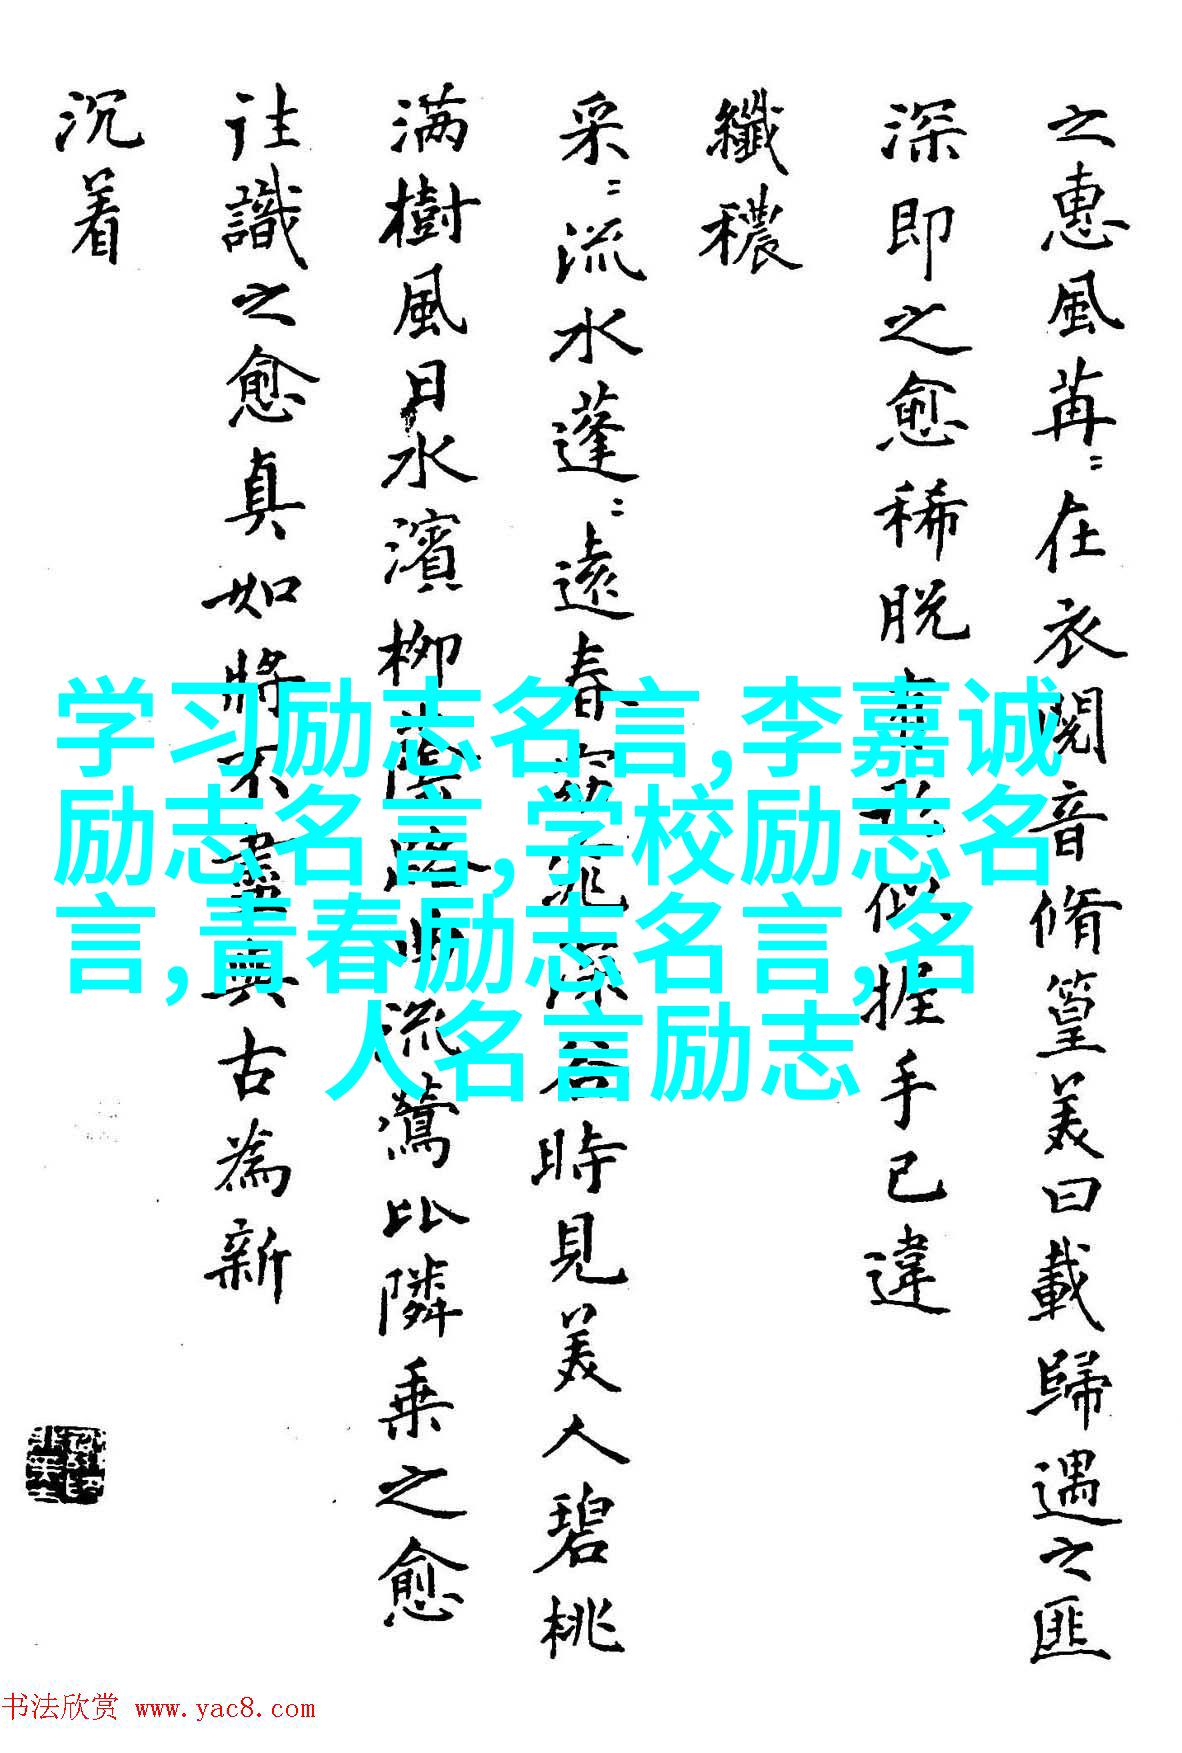 之惠風苒〻在衣閱音脩篁美曰載歸遇之匪
深即之愈稀脱有形似握手已違
纖穠
采〻流水蓬〻遠春窈窕深谷時見美人碧桃
满樹風日水濱柳陰路曲流鶯比隣乗之愈
往識之愈真如將不盡與古為新
沉着
学习励志名言,李嘉诚
励志名言,学校励志名
言,青春励志名言,名
人名言励志
书法欣赏 www.yac8.com